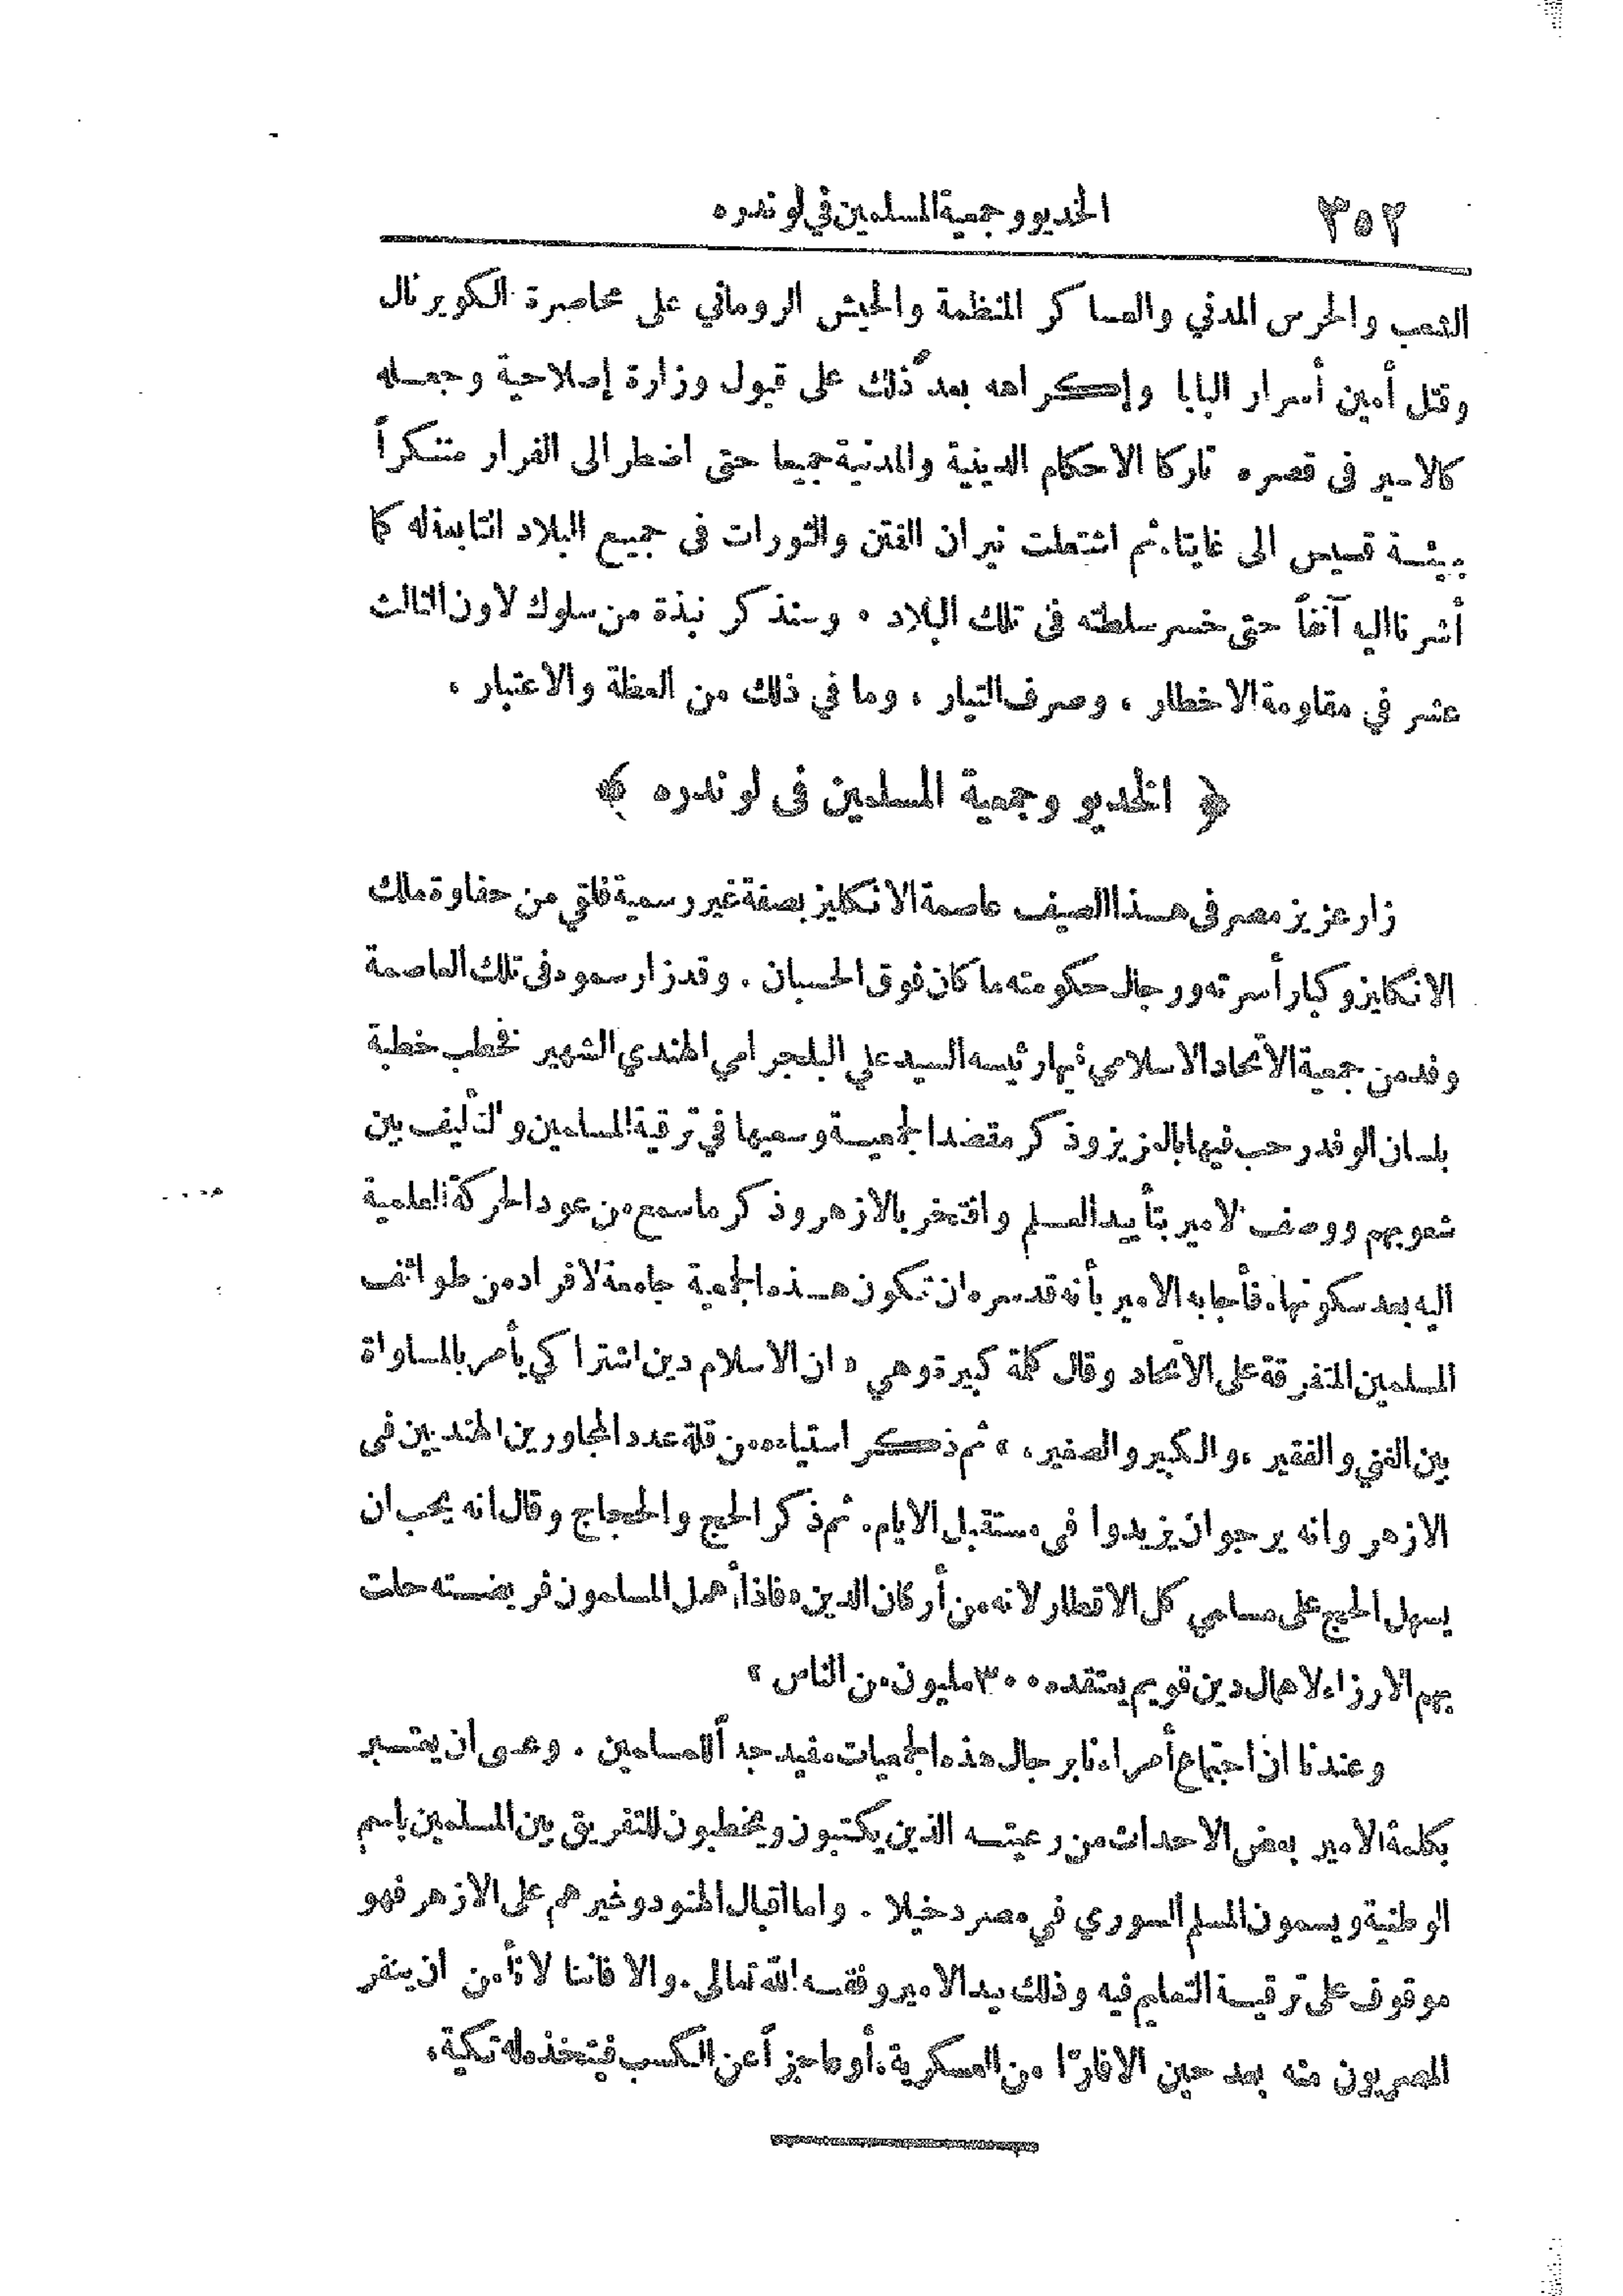 ٣٥٢ الخديو وجمعية المسلمين في لوندره
الشعب والحرس المدني والعساكر المنظمة والجيش الروماني على محاصرة الكويرنال
وقتل أمين أسرار البابا وإكراهه بعد ذلك على قبول وزارة إصلاحية وجعله
كالاسير فى قصره تاركا الاحكام الدينية والمدنية جميعا حتى اضطر الى الفرار متنكراً
بهيئة قسيس الى غايتا. ثم اشتعلت نيران الفتن والثورات فى جميع البلاد التابعة له كما
أشرنا اليه آنفاً حتى خسر سلطته فى تلك البلاد . وسنذكر نبذة من سلوك لاون الثالث
عشر في مقاومة الاخطار ، وصرف التيار ، وما في ذلك من العظة والاعتبار ،
﴿ الخديو وجمعية المسلمين فى لوندره ﴾
زار عزيز مصر فى هذا الصيف عاصمة الانكليز بصفة غير رسمية فلقي من حفاوة ملك
الانكليز وكبار أسرته ورجال حكومته ما كان فوق الحسبان . وقد زار سموه فى تلك العاصمة
وفد من جمعية الاتحاد الاسلامي فيها رئيسه السيد علي البلجرامي الهندي الشهير فخطب خطبة
بلسان الوفد رحب فيها بالعزيز وذكر مقصد الجمعية وسعيها في ترقية المسلمين والتأليف بين
شعوبهم ووصف الامير بتأييد العلم وافتخر بالازهر وذكر ما سمع من عود الحركة العلمية
اليه بعد سكونها. فأجابه الامير بأنه قد سره ان تكون هذه الجمعية جامعة لافراد من طوائف
المسلمين المتفرقة على الاتحاد وقال كلمة كبيرة وهي « ان الاسلام دين اشتراكي يأمر بالمساواة
بين الغني والفقير ، والكبير والصغير، » ثم ذكر استياءه من قلة عدد المجاورين الهنديين فى
الازهر وانه يرجو ان يزيدوا فى مستقبل الايام. ثم ذكر الحج والحجاج وقال انه يجب ان
يسهل الحج على مسلمي كل الاقطار لانه من أركان الدين « فاذا أهمل المسلمون فريضته حلت
بهم الارزاء لاهمال دين قويم يعتقده ٣٠٠ مليون من الناس »
وعندنا ان اجتماع أمراءنا برجال هذه الجمعيات مفيد جداً للمسلمين . وعسى ان يعتبر
بكلمة الامير بعض الاحداث من رعيته الذين يكتبون ويخطبون للتفريق بين المسلمين باسم
الوطنية ويسمون المسلم السوري في مصر دخيلا . واما اقبال الهنود وغيرهم على الازهر فهو
موقوف على ترقية التعليم فيه وذلك بيد الامير وفقه الله تعالى. والا فاننا لا نأمن ان ينفر
المصريون منه بعد حين الا فارّا من العسكرية، أو عاجزاً عن الكسب فيتخذه له تكية،